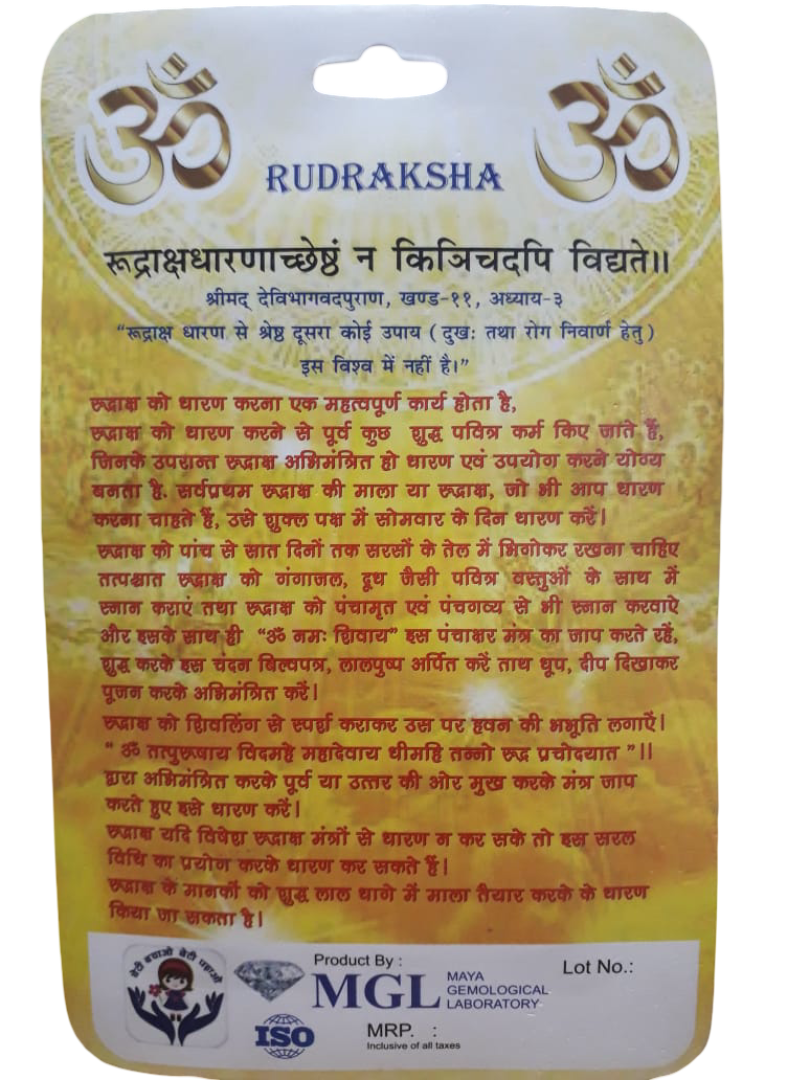 ॐ ॐ
RUDRAKSHA
रूद्राक्षधारणाच्छेष्ठं न किञिचदपि विद्यते॥
श्रीमद् देविभागवदपुराण, खण्ड-११, अध्याय-३
“रूद्राक्ष धारण से श्रेष्ठ दूसरा कोई उपाय ( दुखः तथा रोग निवार्ण हेतु )
इस विश्व में नहीं है।”
रुद्राक्ष को धारण करना एक महत्वपूर्ण कार्य होता है,
रुद्राक्ष को धारण करने से पूर्व कुछ शुद्ध पवित्र कर्म किए जाते हैं,
जिनके उपरान्त रुद्राक्ष अभिमंत्रित हो धारण एवं उपयोग करने योग्य
बनता है. सर्वप्रथम रुद्राक्ष की माला या रुद्राक्ष, जो भी आप धारण
करना चाहते हैं, उसे शुक्ल पक्ष में सोमवार के दिन धारण करें।
रुद्राक्ष को पांच से सात दिनों तक सरसों के तेल में भिगोकर रखना चाहिए
तत्पश्चात रुद्राक्ष को गंगाजल, दूध जैसी पवित्र वस्तुओं के साथ में
स्नान कराएं तथा रुद्राक्ष को पंचामृत एवं पंचगव्य से भी स्नान करवाऐ
और इसके साथ ही “ॐ नमः शिवाय” इस पंचाक्षर मंत्र का जाप करते रहें,
शुद्ध करके इस चंदन बिल्वपत्र, लालपुष्प अर्पित करें ताथ धूप, दीप दिखाकर
पूजन करके अभिमंत्रित करें।
रुद्राक्ष को शिवलिंग से स्पर्श कराकर उस पर हवन की भभूति लगाऐं।
“ ॐ तत्पुरूषाय विदमहे महादेवाय धीमहि तन्नो रुद्र प्रचोदयात ”।।
द्वारा अभिमंत्रित करके पूर्व या उत्तर की ओर मुख करके मंत्र जाप
करते हुए इसे धारण करें।
रुद्राक्ष यदि विषेश रुद्राक्ष मंत्रों से धारण न कर सके तो इस सरल
विधि का प्रयोग करके धारण कर सकते हैं।
रुद्राक्ष के मानकों को शुद्ध लाल धागे में माला तैयार करके के धारण
किया जा सकता है।
बेटी बचाओ बेटी पढ़ाओ
Product By :
MGL MAYA
GEMOLOGICAL
LABORATORY
Lot No.:
ISO
MRP. :
Inclusive of all taxes